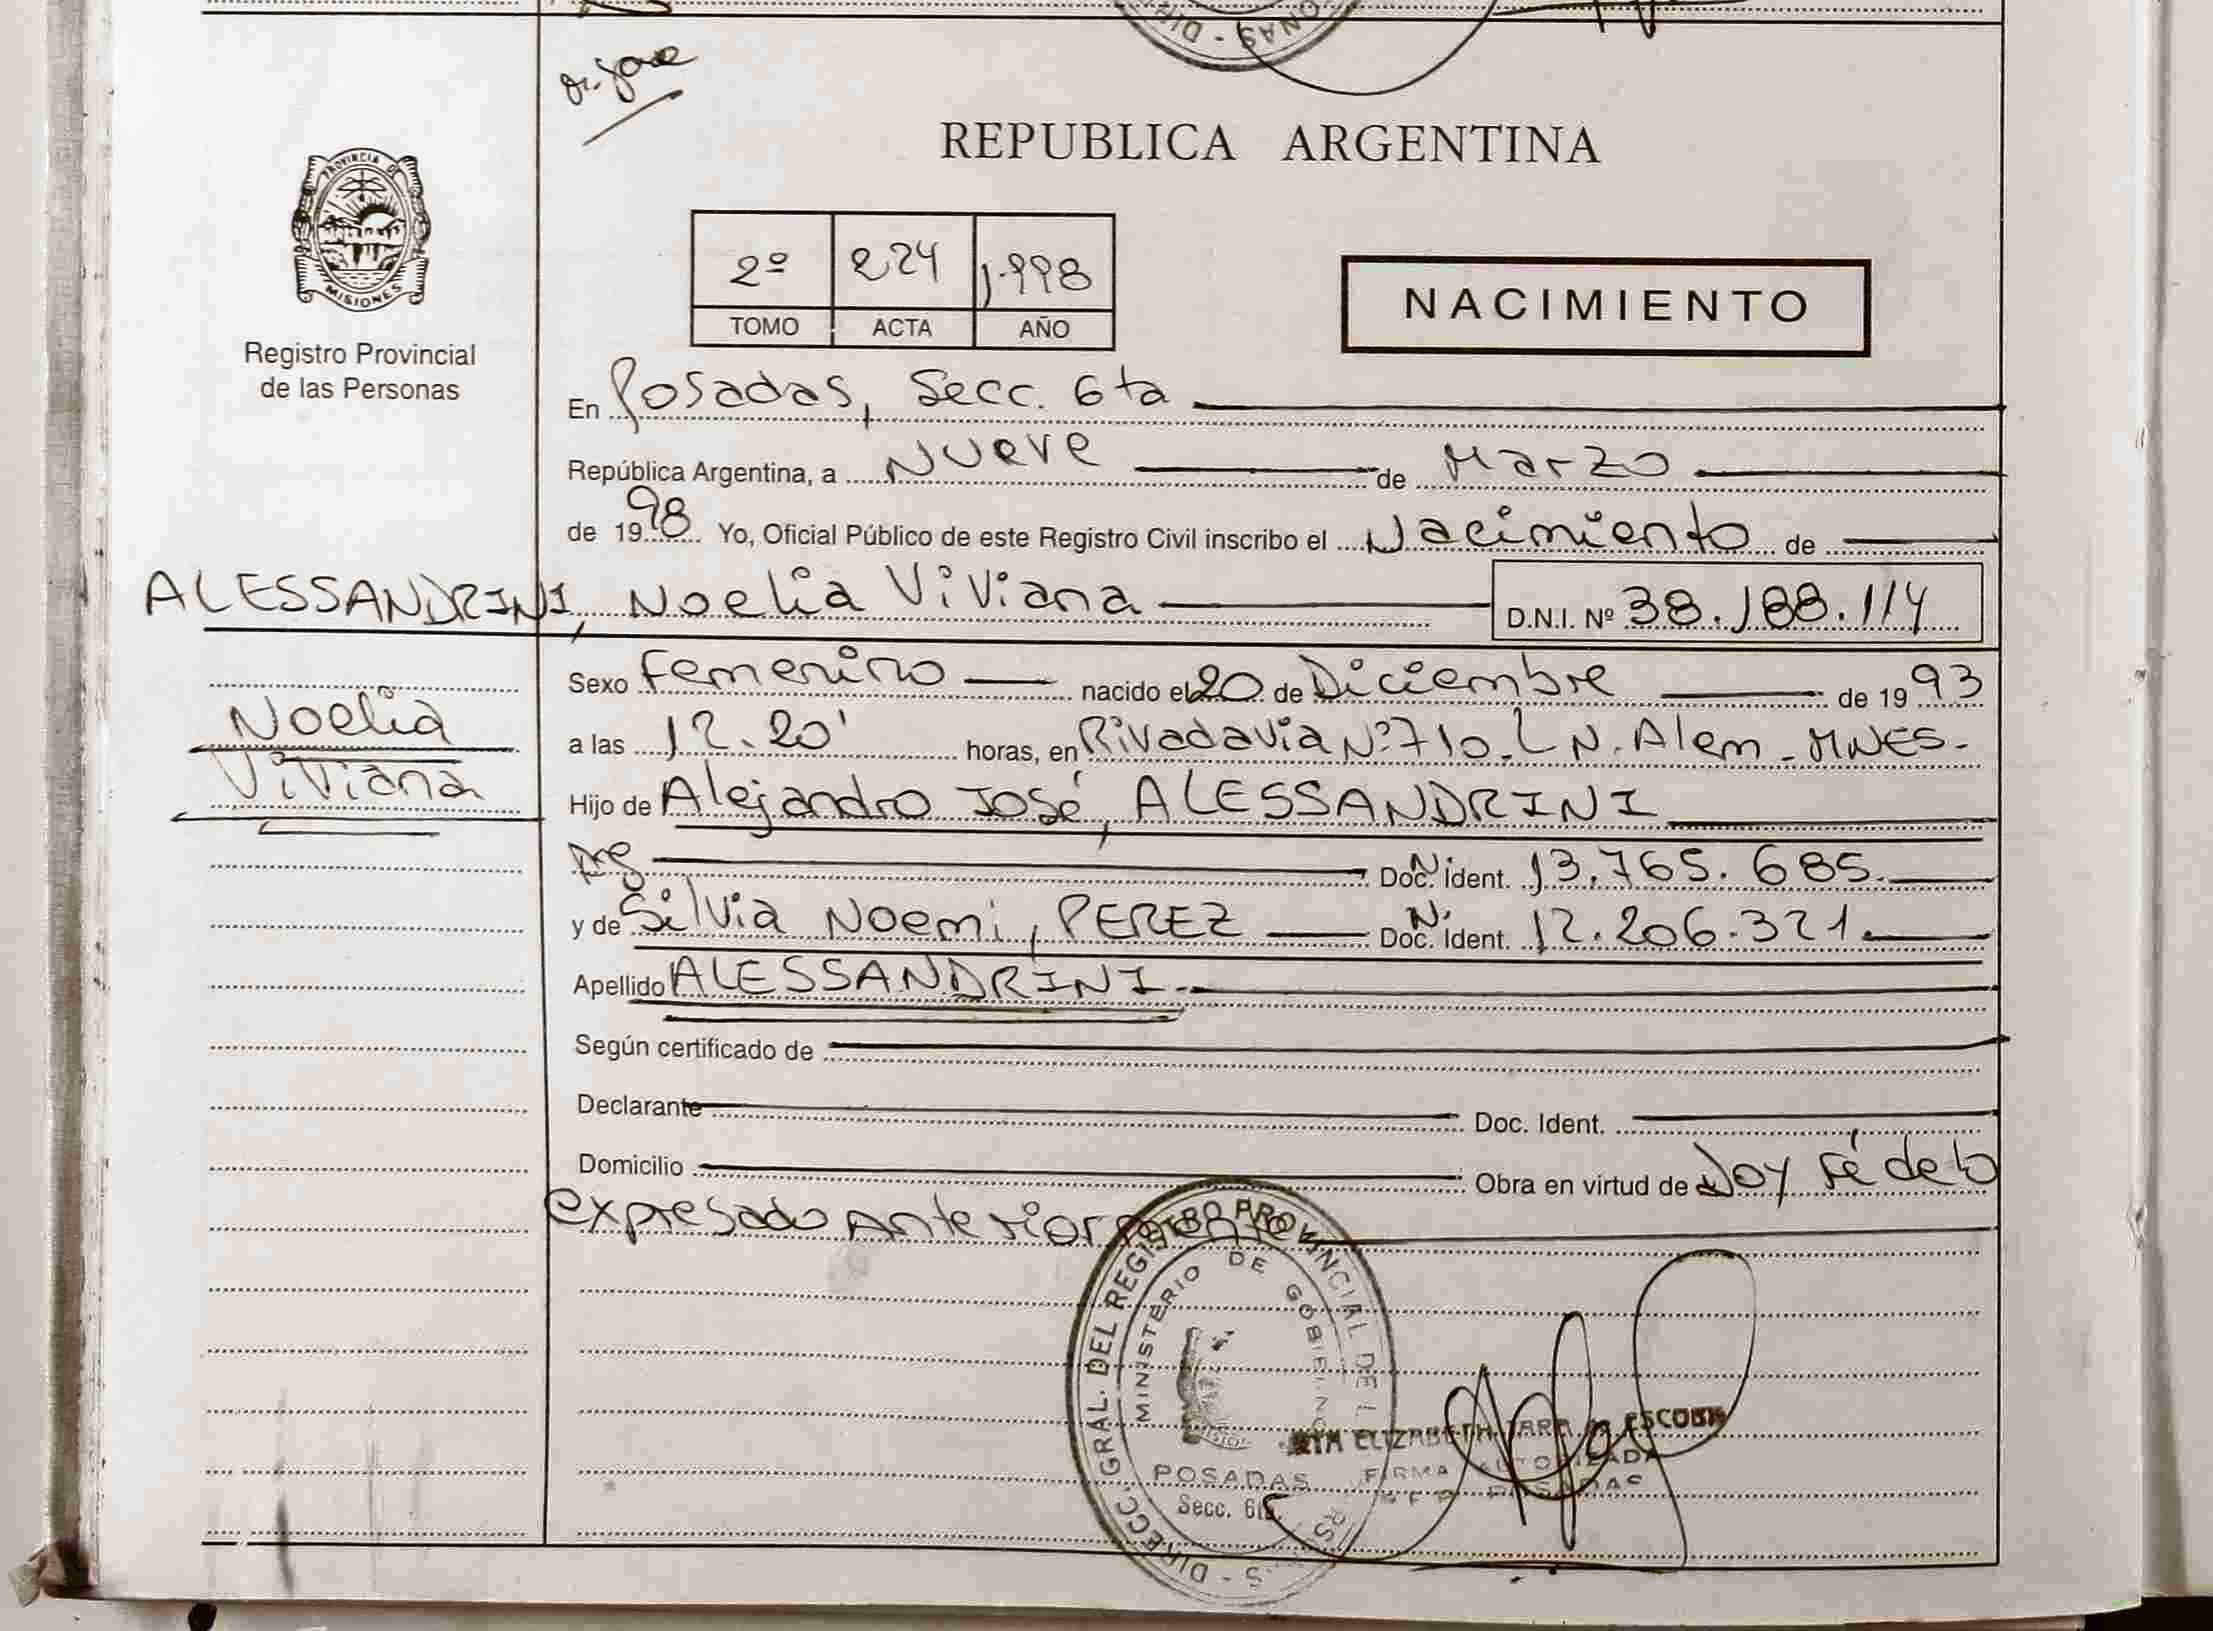 REPUBLICA ARGENTINA
PROVINCIA DE
MISIONES
Registro Provincial
de las Personas
2º 224 1.998
TOMO ACTA AÑO
NACIMIENTO
En Posadas, Secc. 6ta
República Argentina, a Nueve de Marzo
de 1998 Yo, Oficial Público de este Registro Civil inscribo el Nacimiento de
ALESSANDRINI, Noelia Viviana D.N.I. Nº 38.188.114
Noelia
Viviana
Sexo Femenino nacido el 20 de Diciembre de 1993
a las 12.20' horas, en Rivadavia Nº 710. L N. Alem - MNES.
Hijo de Alejandro José, ALESSANDRINI
Arg Doc. N. Ident. 13.765.685.
y de Silvia Noemi, PEREZ Doc. N. Ident. 12.206.321.
Apellido ALESSANDRINI.
Según certificado de
Declarante Doc. Ident.
Domicilio Obra en virtud de Doy fé de lo
expresado anteriormente
DIRECC. GRAL. DEL REGISTRO PROVINCIAL DE L
MINISTERIO DE GOBIERNO
POSADAS
Secc. 6ta.
ELIZABETH ESCOBAR
FIRMA AUTORIZADA
POSADAS